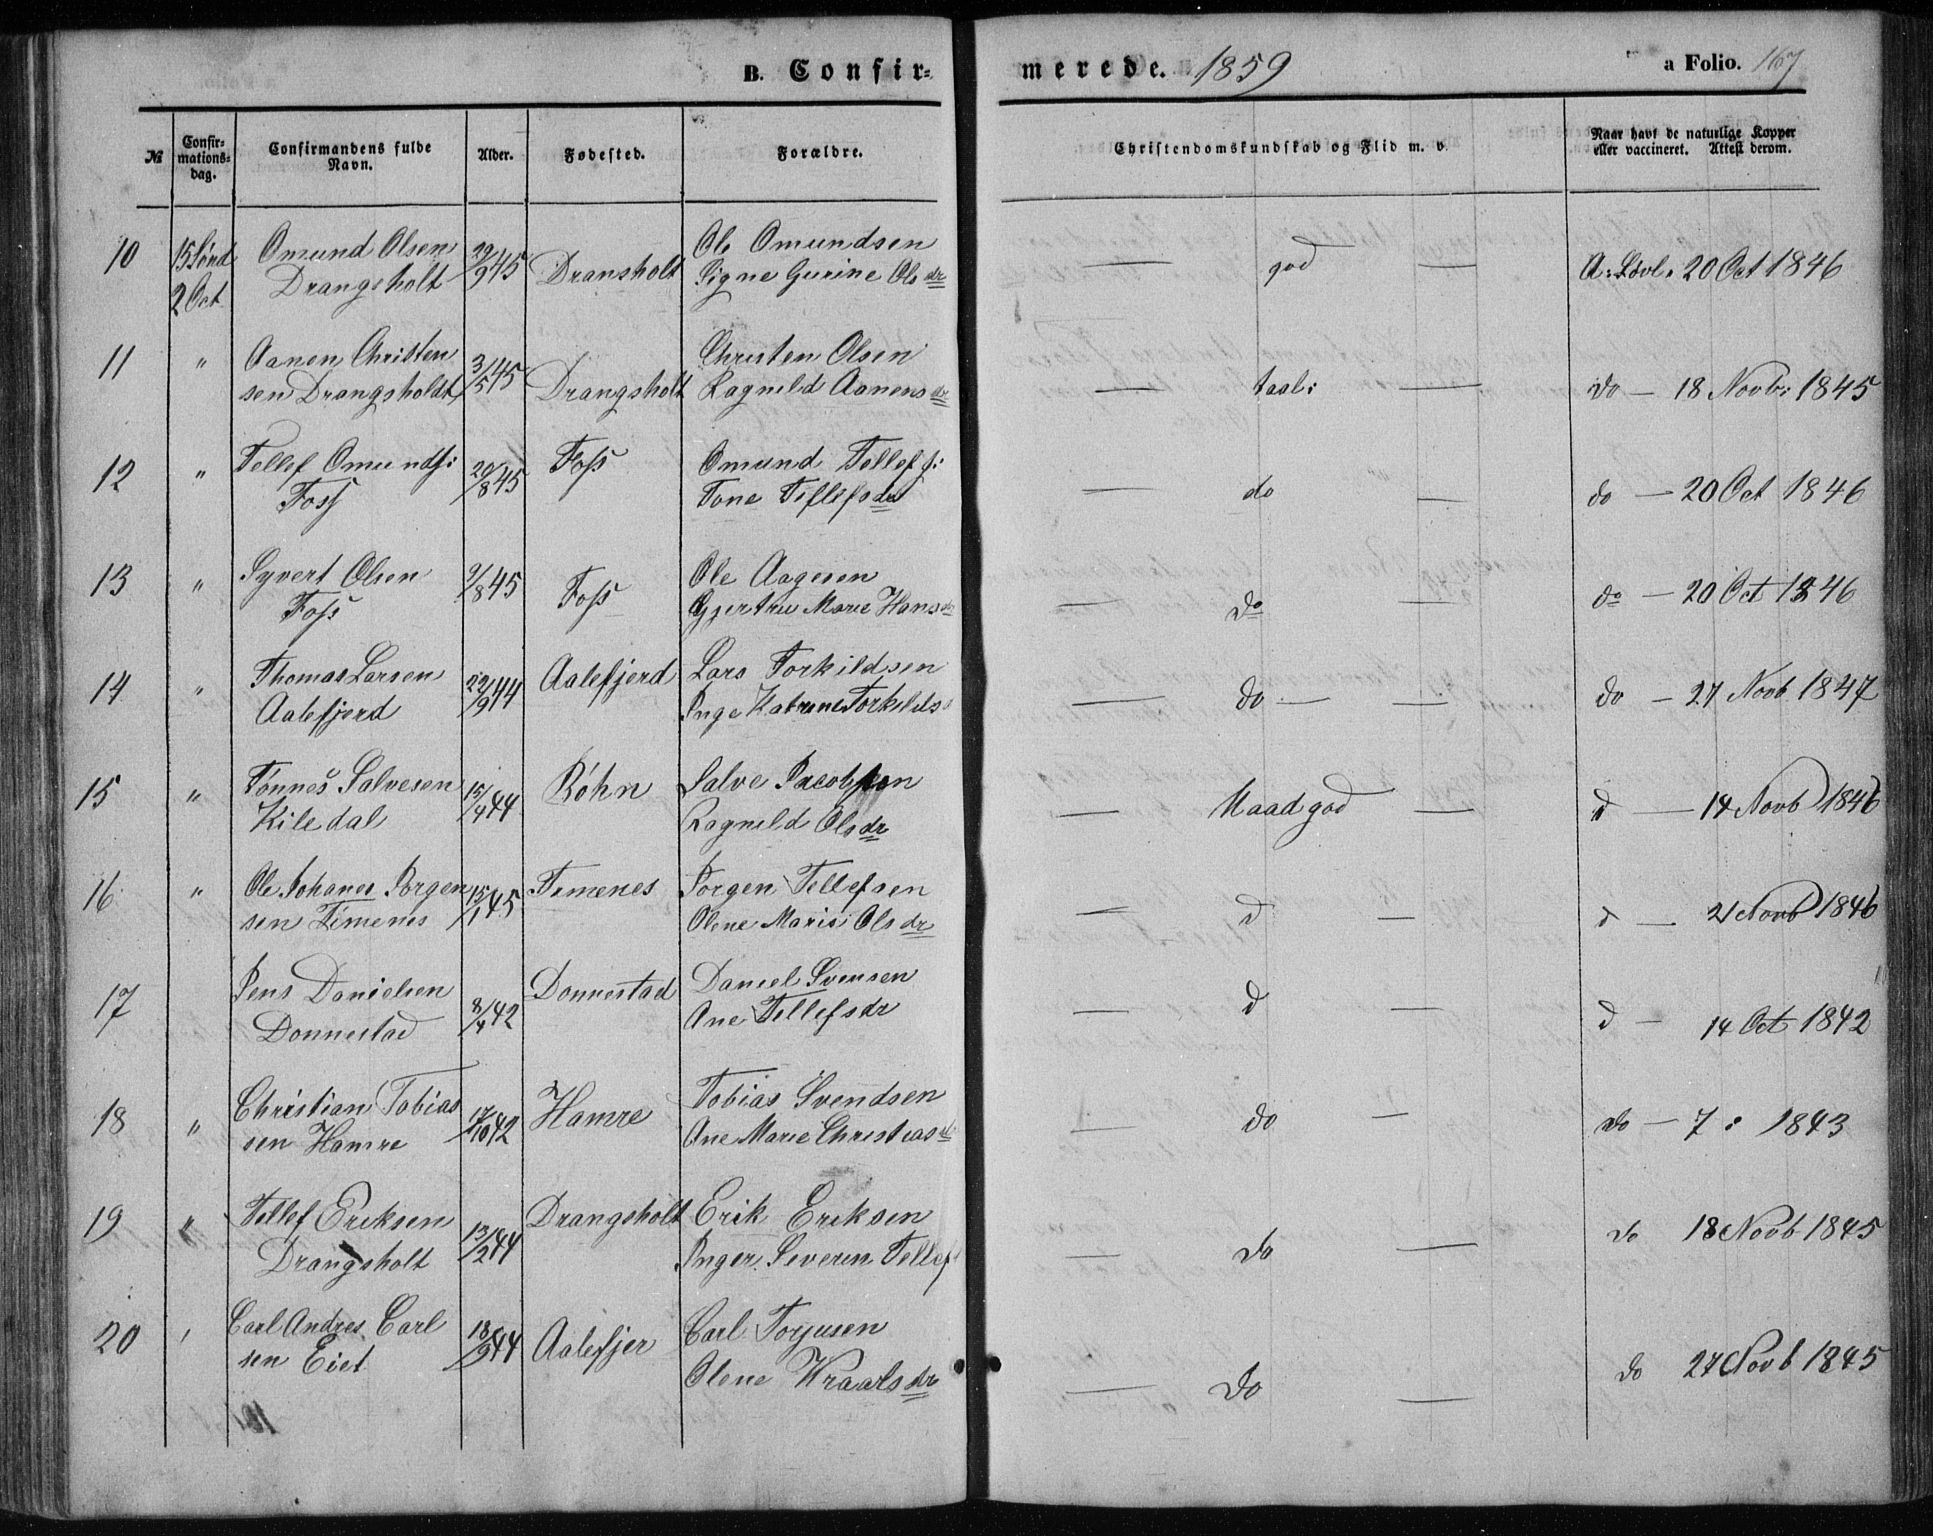 B. Confir=
merede. 1859
a Folio. 167
№
Confir-
mations=
dag.
Confirmandens fulde
Navn.
Alder.
Fødested.
Forældre.
Christendomskundskab og Flid m. v.
Naar havt de naturlige Kopper
eller vaccineret. Attest derom.
10 15 Sønd Omund Olsen 29/9 45 Dransholt Ole Omundsen — god — A: Ldvl. 20 Oct 1846
2 Oct Drangsholt Signe Gurine Olsdr
11 " Aanen Christen 3/5 45 Drangsholt Christen Olsen — taal: — do — 18 Novb: 1845
sen Drangsholdt Ragnild Aanensdr
12 " Tellef Omunds: 20/8 45 Foss Omund Tellefs: — do — do — 20 Oct 1846
Foss Tone Tellefsdr
13 " Syvert Olsen 9/8 45 Foss Ole Aagesen — do — do — 20 Oct 1846
Foss Gjertru Marie Hansdr
14 " Thomas Larsen 22/9 44 Aalefjerd Lars Torkildsen — do — — do — 27 Novb 1847
Aalefjerd Inge Katrine Torkilds
15 " Tønnes Salvesen 15/4 44 Røhn Salve Jacobsen — Maad god — d — 14 Novb 1846
Kiledal Ragnild Olsdr
16 " Ole Johanes Jørgen 15/1 45 Timenes Jørgen Tellefsen — d — d — 21 Novb 1846
sen Timenes Olene Marie Olsdr
17 Jens Danielsen 8/4 42 Donnestad Daniel Svensen — d — d — 14 Oct 1842
Donnestad Ane Tellefsdr
18 " Christian Tobias 17/10 42 Hamre Tobias Svendsen — do — do — 7: 1843
sen Hamre Ane Marie Christiasd
19 " Tellef Eriksen 13/2 44 Drangsholt Erik Eriksen — do — do 18 Novb 1845
Drangsholt Inger Severin Tellef
20 ' Carl Andres Carl 18/9 44 Aalefjer Carl Torjusen — do — do 24 Novb 1845
sen Eiet Olene Kraalsdr